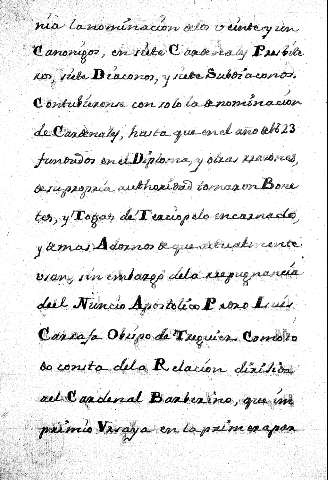 nia la nominacion de los veinte y un
Canonigos, en siete Cardenales Presbite
ros, siete Diaconos, y siete Subdiaconos.
Contubierense con solo la denominacion
de Cardenales, hasta que en el año de 1623
fundados en el Diploma, y otras razones,
de su propria authoridad tomaron Bone
tes, y Togas de Terciopelo encarnado,
y demas Adornos de que actualmente
usan, sin embargo de la repugnancia
del Nuncio Apostolico Pedro Luis
Carrafa Obispo de Treguier. Como to
do consta de la Relacion dirisida
al Cardenal Barberino, que im
primio Usaya en la primera par